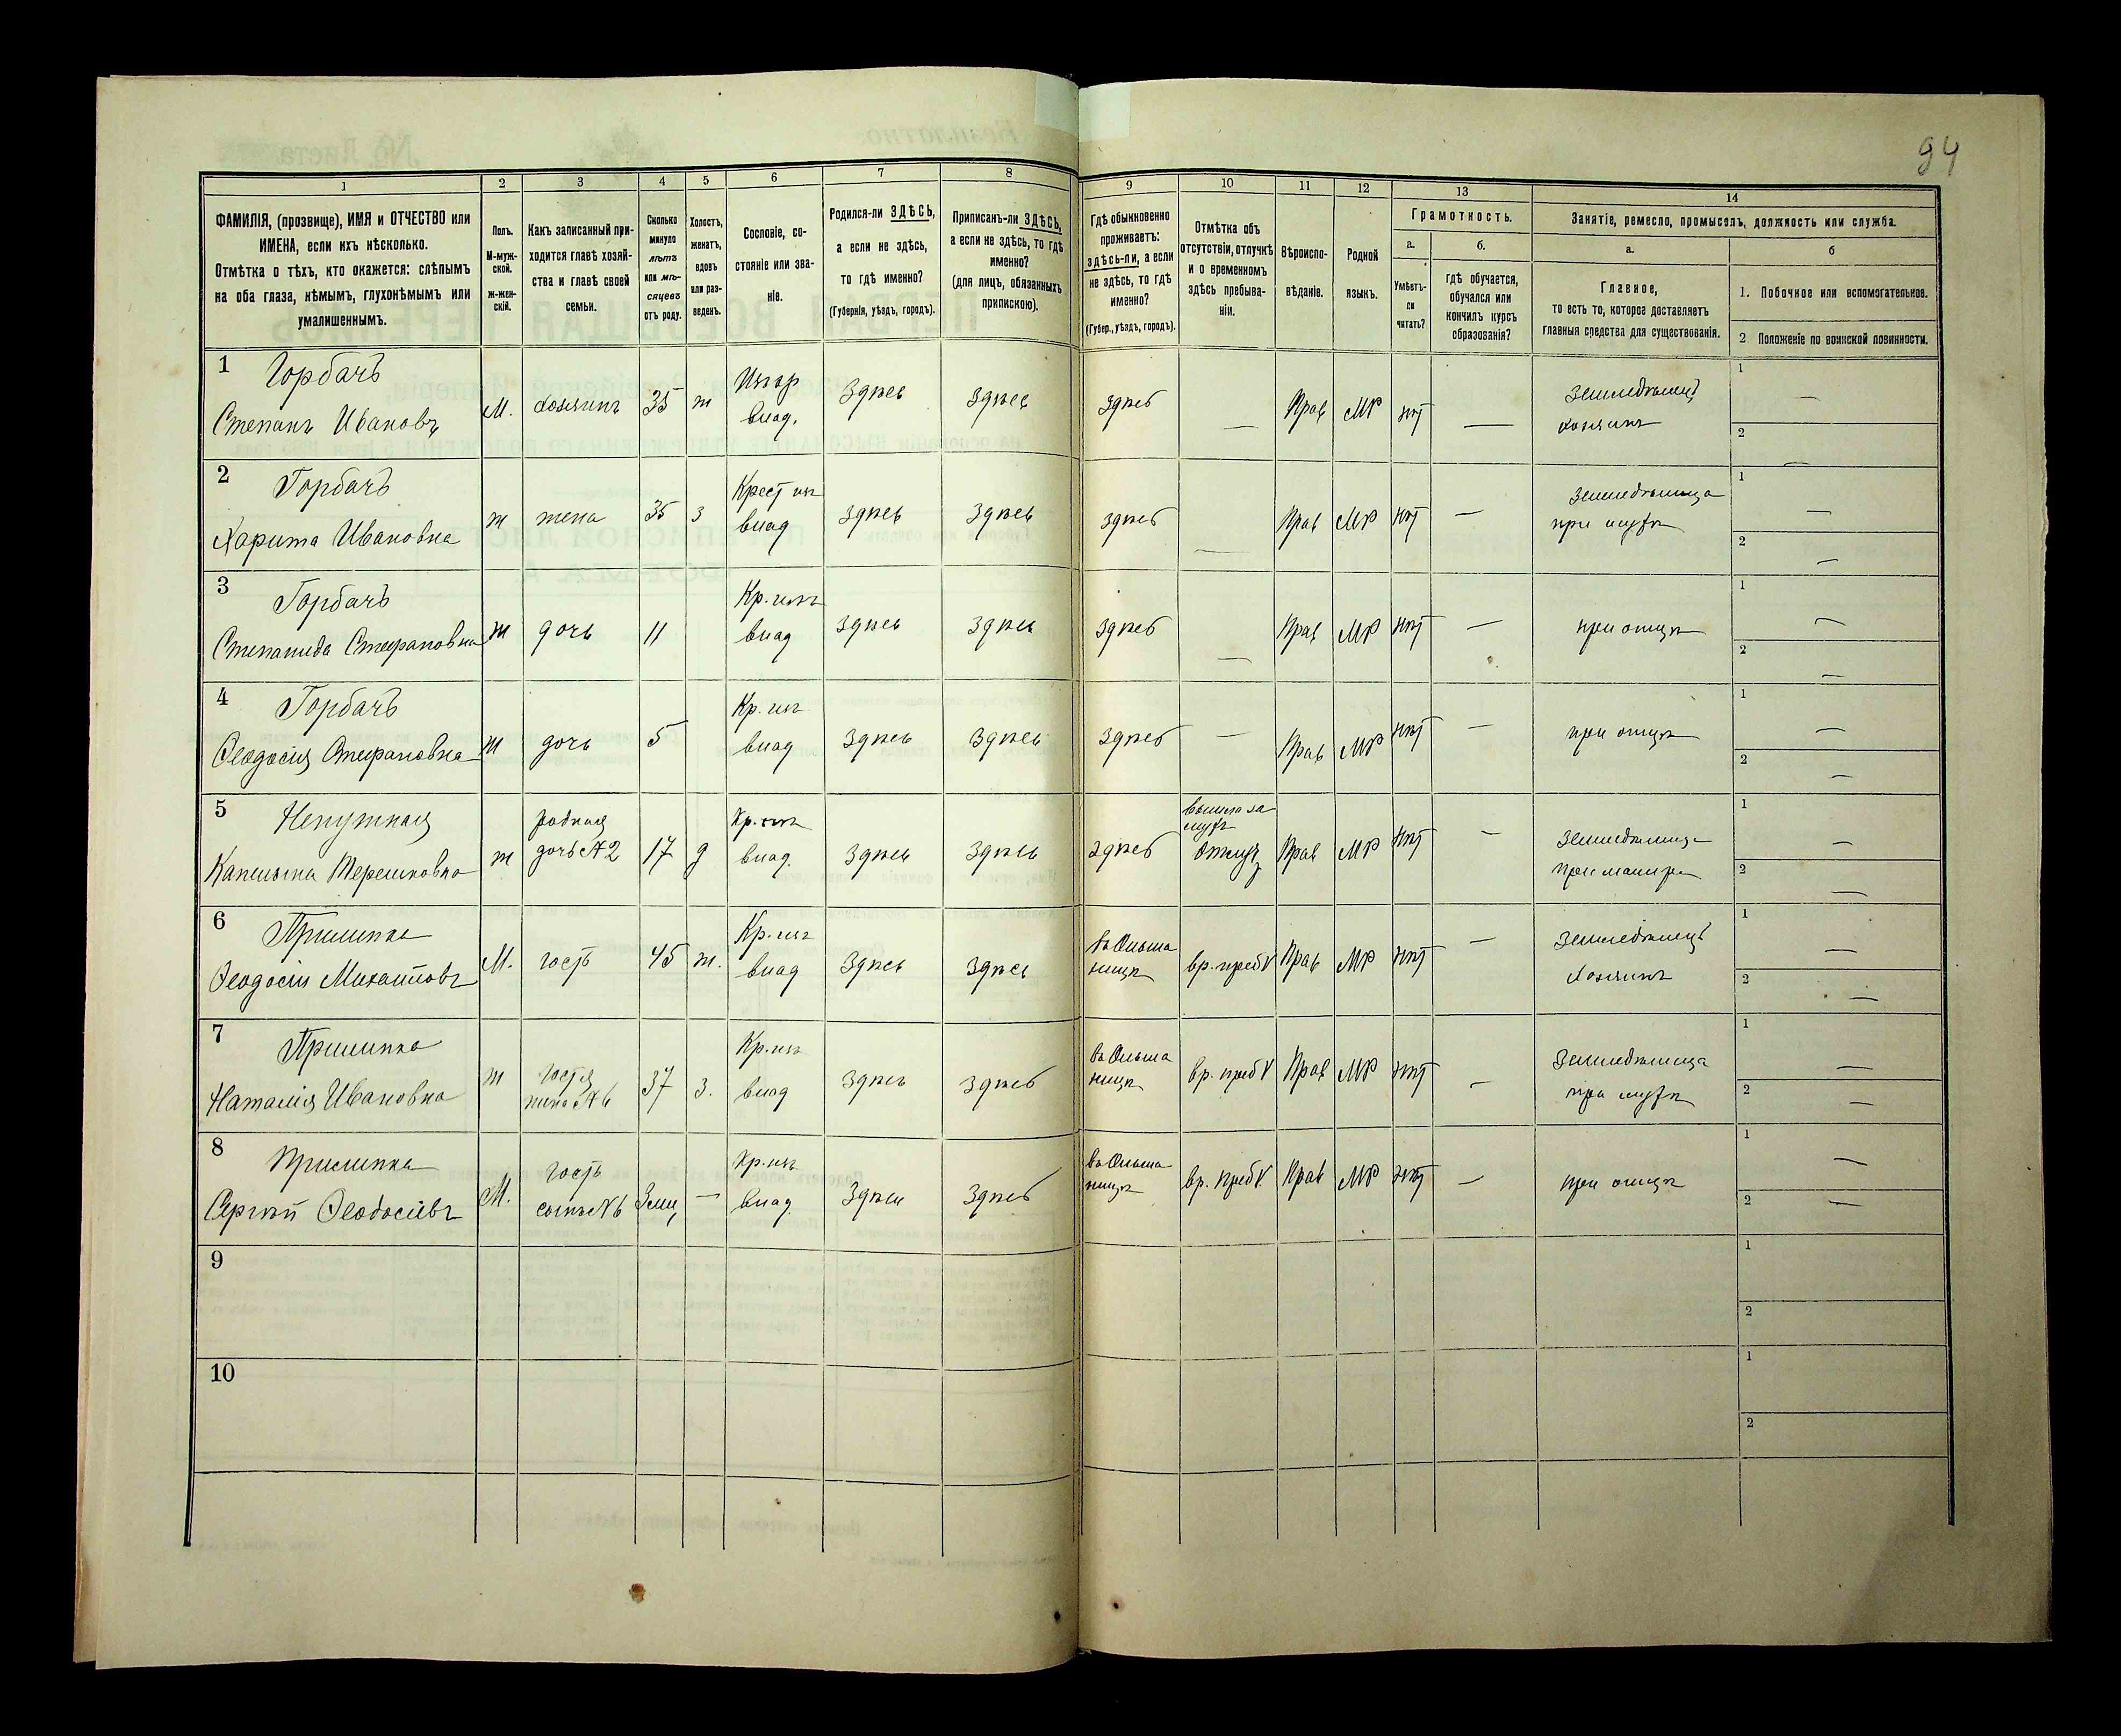 94
1 2 3 4 5 6 7 8 9 10 11 12 13 14
ФАМИЛІЯ, (прозвище), ИМЯ и ОТЧЕСТВО или
ИМЕНА, если ихъ нѣсколько.
Отмѣтка о тѣхъ, кто окажется: слѣпымъ
на оба глаза, нѣмымъ, глухонѣмымъ или
умалишеннымъ.
Полъ.
М-муж-
ской.
ж-жен-
скій.
Какъ записанный при-
ходится главѣ хозяй-
ства и главѣ своей
семьи.
Сколько
минуло
лѣтъ
или мѣ-
сяцевъ
отъ роду.
Холостъ,
женатъ,
вдовъ
или раз-
веденъ.
Сословіе, со-
стояніе или зва-
ніе.
Родился-ли ЗДѢСЬ,
а если не здѣсь,
то гдѣ именно?
(Губернія, уѣздъ, городъ).
Приписанъ-ли ЗДѢСЬ,
а если не здѣсь, то гдѣ
именно?
(для лицъ, обязанныхъ
припискою).
Гдѣ обыкновенно
проживаетъ:
здѣсь-ли, а если
не здѣсь, то гдѣ
именно?
(Губер., уѣздъ, городъ).
Отмѣтка объ
отсутствіи, отлучкѣ
и о временномъ
здѣсь пребыва-
ніи.
Вѣроиспо-
вѣданіе.
Родной
языкъ.
Грамотность.
а.
Умѣетъ-
ли
читать?
б.
гдѣ обучается,
обучался или
кончилъ курсъ
образованія?
Занятіе, ремесло, промыселъ, должность или служба.
а.
Главное,
то есть то, которое доставляетъ
главныя средства для существованія.
б
1. Побочное или вспомогательное.
2 Положеніе по воинской повинности.
1 Горбачъ
Степанъ Ивановъ
М. хозяинъ 35 ж
влад.
Здѣсь Здѣсь здѣсь — Прав МР нѣт —
Земледѣлецъ
хозяинъ
1 —
2 —
2 Горбачъ
Харита Ивановна
ж жена 35 з
Крест изъ
влад
здѣсь здѣсь здѣсь — Прав МР нѣт —
Земледѣлица
при мужѣ
1 —
2 —
3 Горбачъ
Степанида Стефановна
ж дочь 11
Кр. изъ
влад
здѣсь здѣсь здѣсь — Прав МР нѣт —
при отцѣ
1 —
2 —
4 Горбачъ
Феодосія Стефановна
ж дочь 5
Кр. изъ
влад
здѣсь здѣсь здѣсь — Прав МР нѣт —
при отцѣ
1 —
2 —
5
ж
родная
дочь №2
17 д
Кр. изъ
влад.
здѣсь здѣсь здѣсь
вышла за
мужъ
Прав МР нѣт —
Земледѣлица
при матери
1 —
2 —
6
Феодосій Михайловъ
М. гость 45 ж.
Кр. изъ
влад
здѣсь здѣсь
въ Ольша
ницѣ
вр. преб Прав МР нѣт —
Земледѣлецъ
хозяинъ
1 —
2 —
7
Наталія Ивановна
ж
гостя
жена №6
37 з.
Кр. изъ
влад
здѣсь здѣсь
въ Ольша
ницѣ
вр. преб Прав МР нѣт —
Земледѣлица
при мужѣ
1 —
2 —
8
Сергѣй Феодосіевъ
М.
гость
сынъ №6
3 мц —
Кр. изъ
влад
здѣсь здѣсь
въ Ольша
ницѣ
вр. преб Прав МР нѣт —
при отцѣ
1 —
2 —
9
1
2
10
1
2